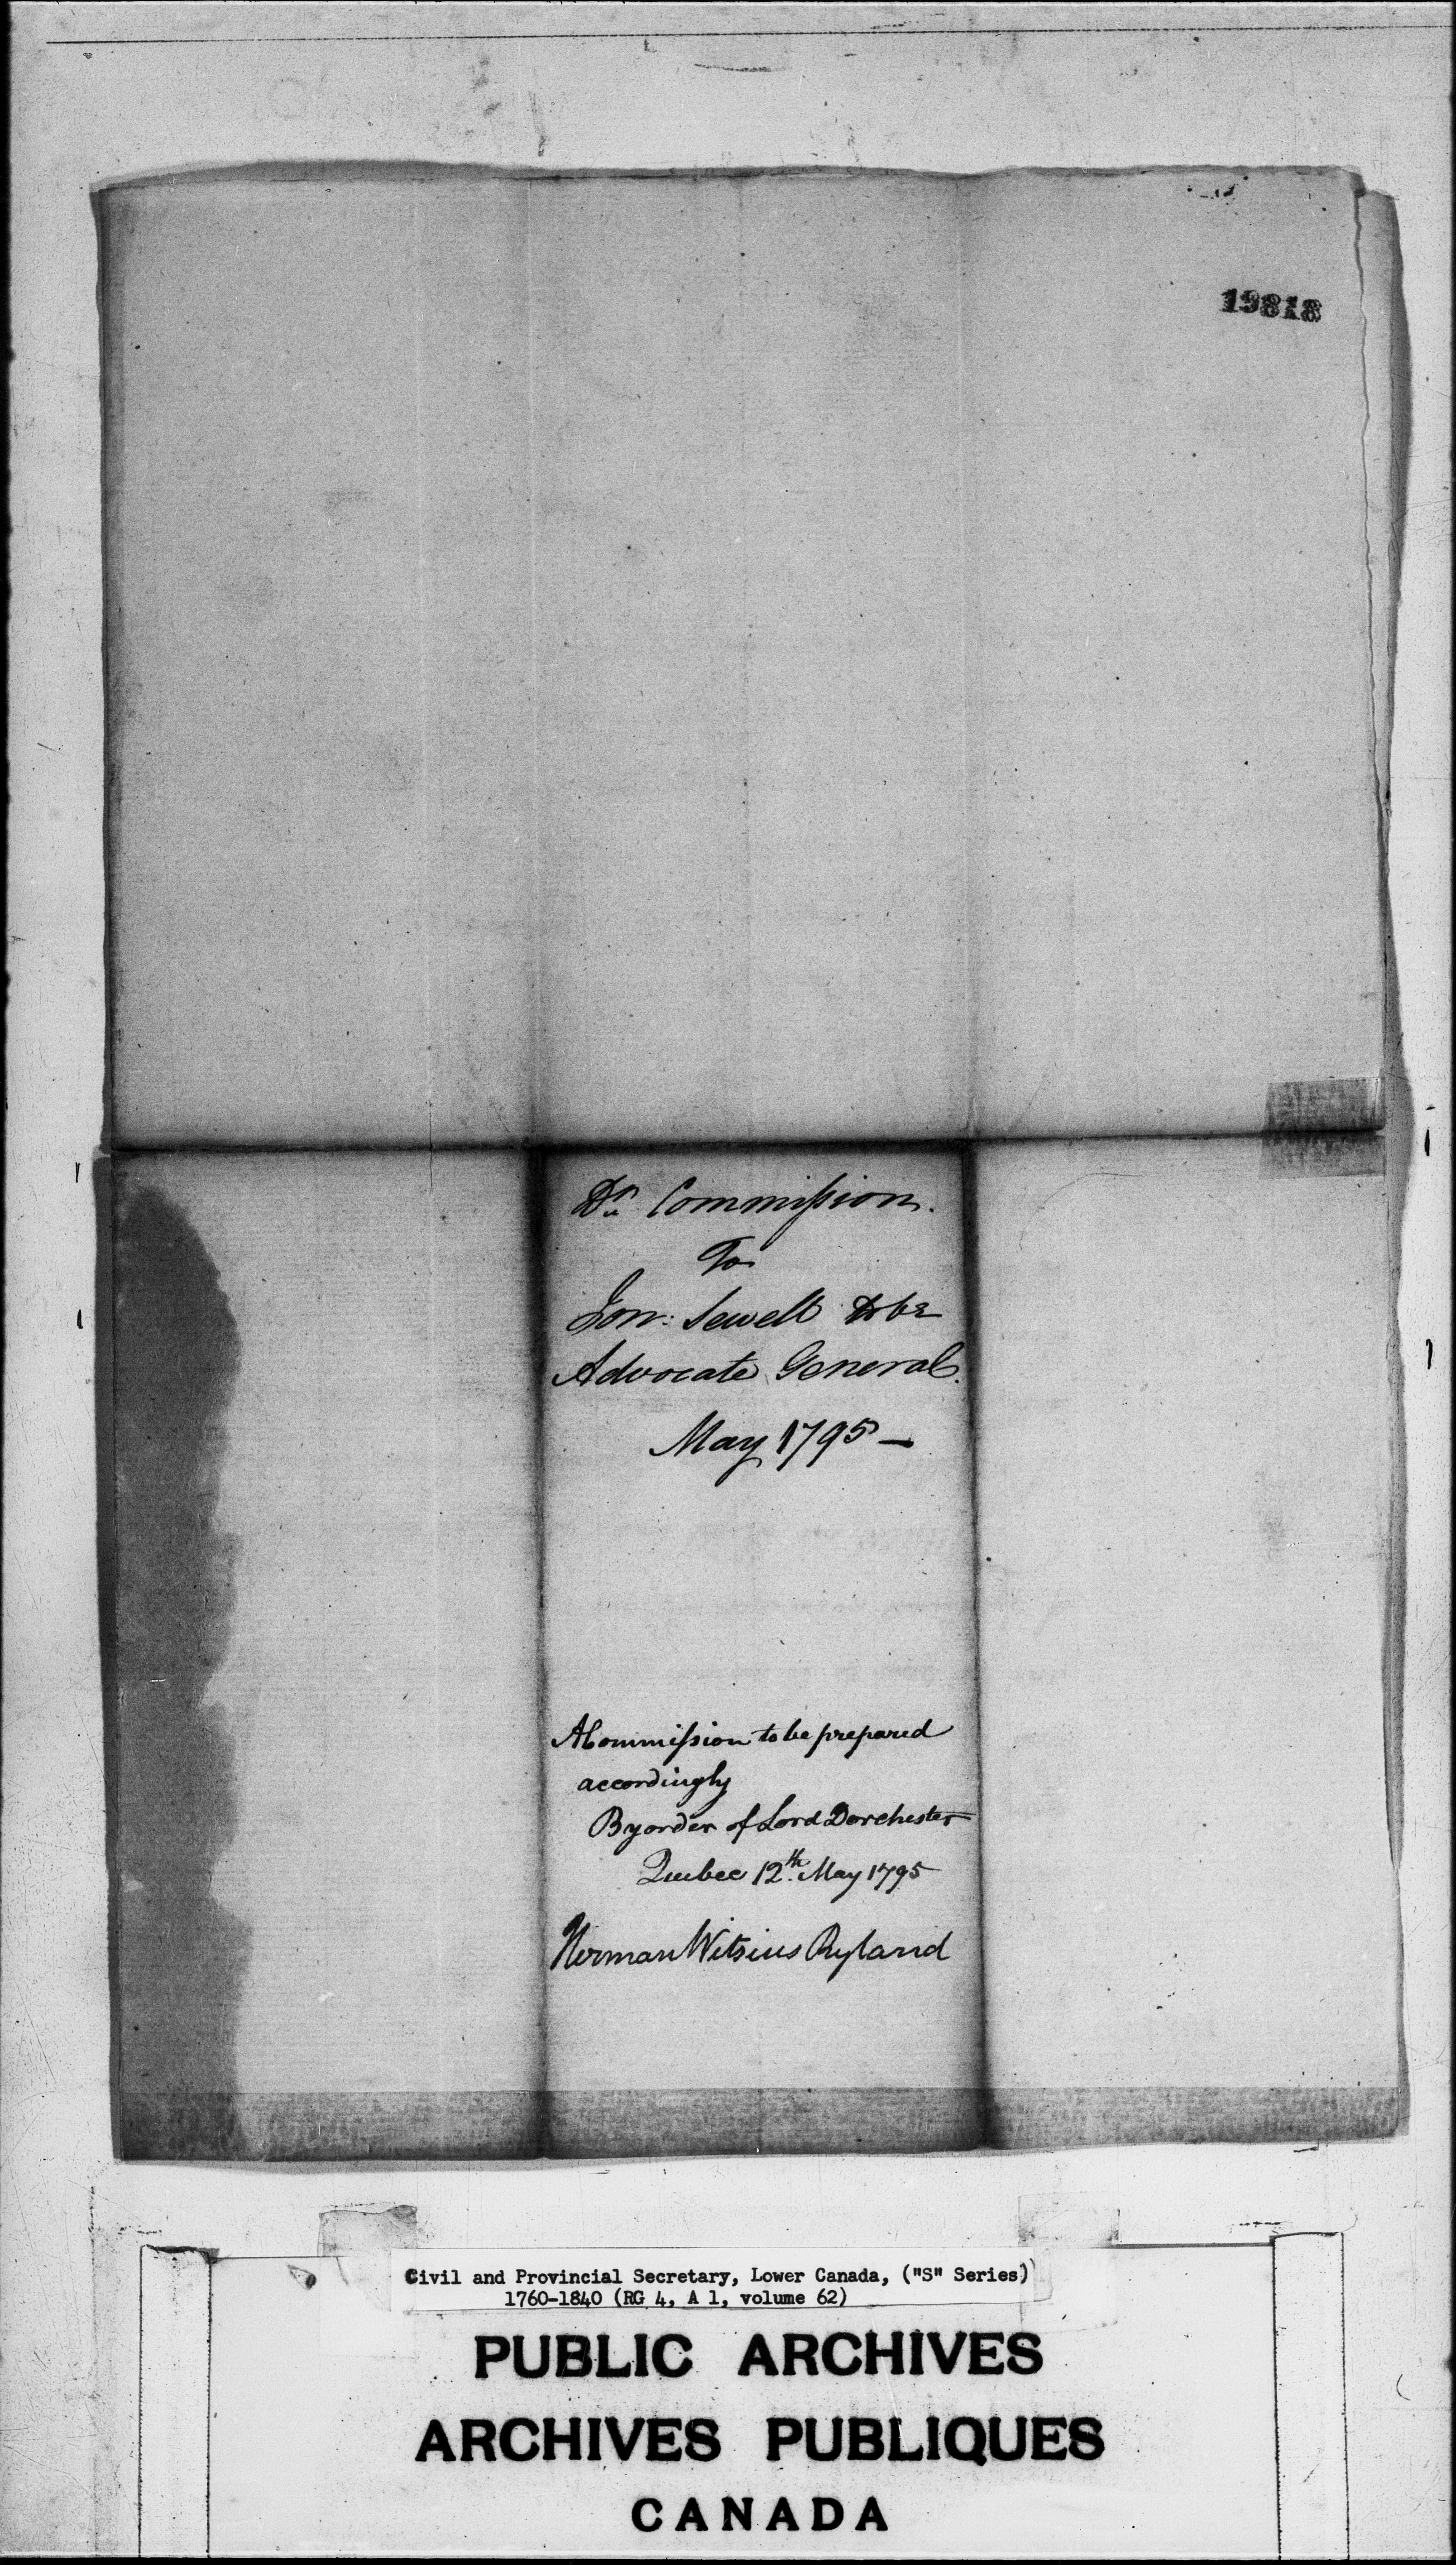 19818
Dt. Commission.
To
Jon: Sewell to be
Advocate General.
May 1795 —
A Commission to be prepared
accordingly
By order of Lord Dorchester
Quebec 12th. May 1795
Herman Witsius Ryland
Civil and Provincial Secretary, Lower Canada, ("S" Series)
1760-1840 (RG 4, A 1, volume 62)
PUBLIC ARCHIVES
ARCHIVES PUBLIQUES
CANADA